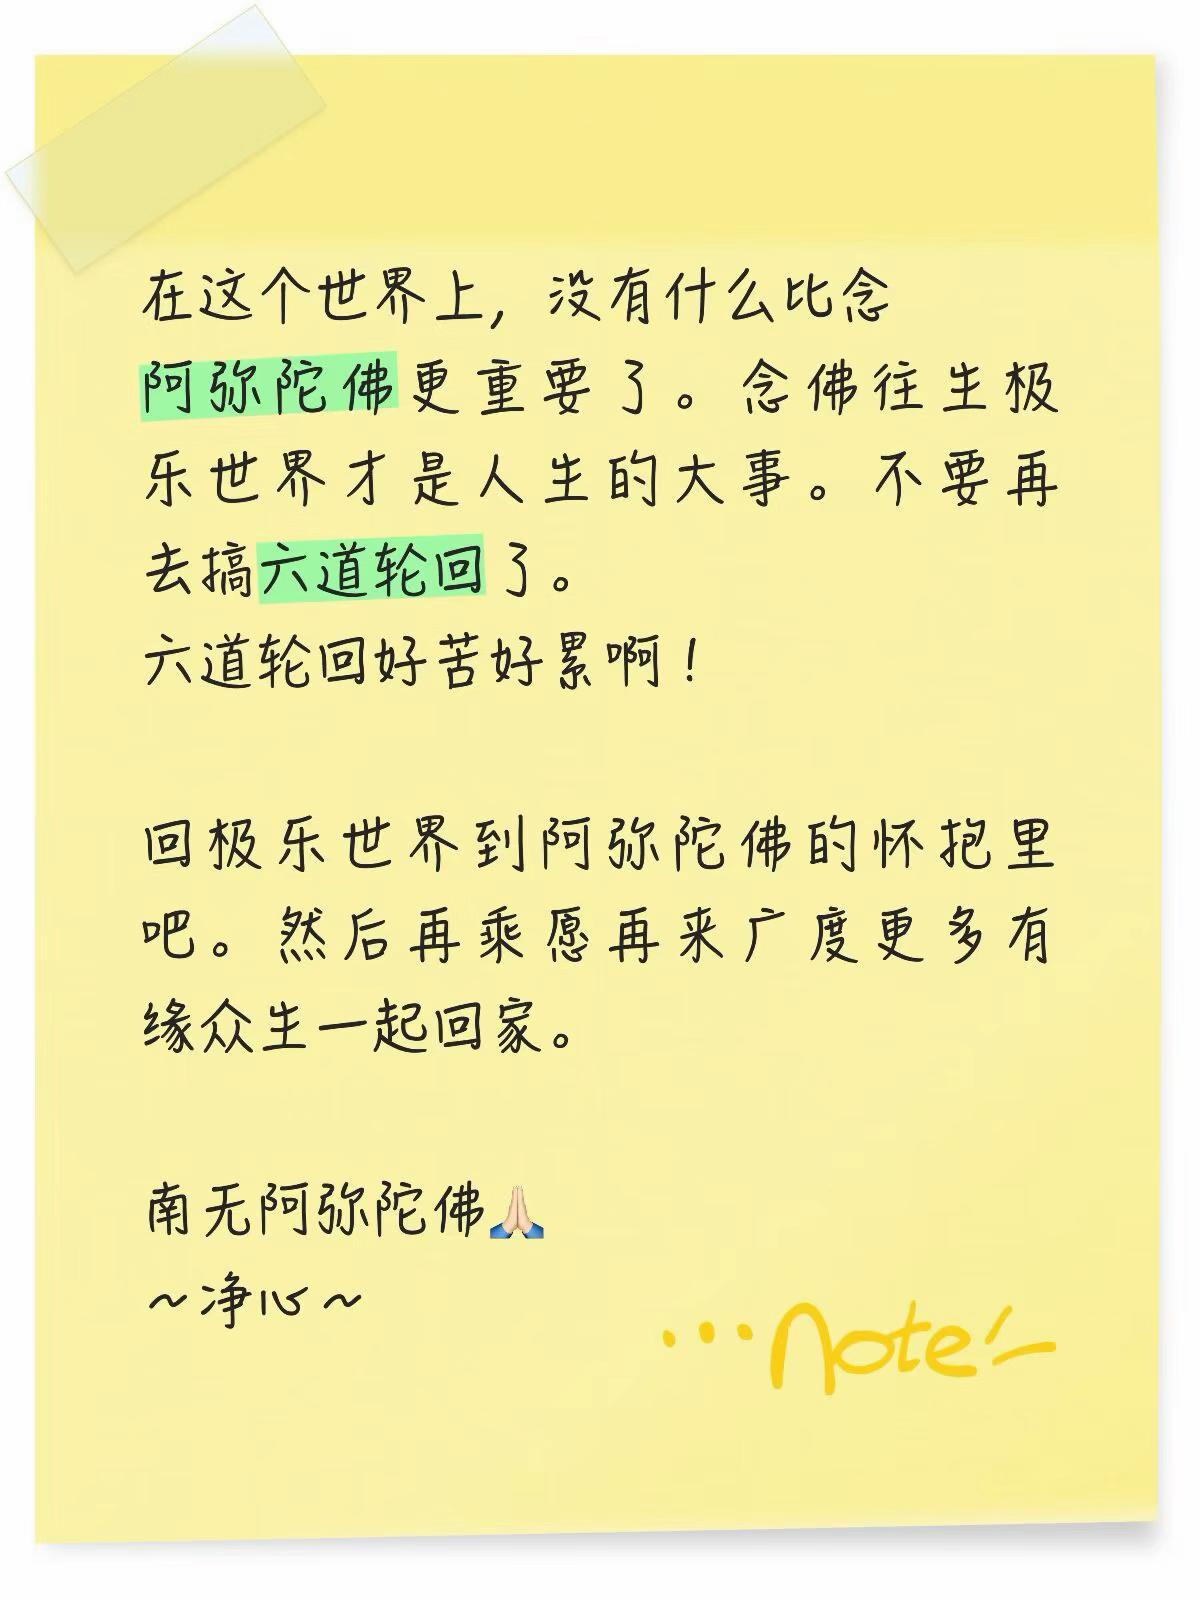 在这个世界上，没有什么比念
阿弥陀佛更重要了。念佛往生极
乐世界才是人生的大事。不要再
去搞六道轮回了。
六道轮回好苦好累啊！
回极乐世界到阿弥陀佛的怀抱里
吧。然后再乘愿再来广度更多有
缘众生一起回家。
南无阿弥陀佛🙏🏻
~净心~
...note